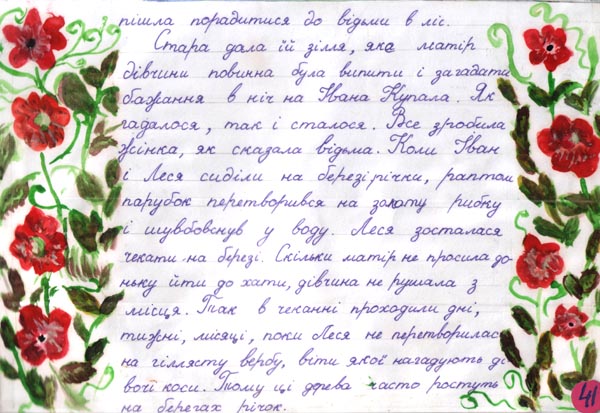 пішла порадитися до відьми в ліс.
Стара дала їй зілля, яке матір
дівчини повинна була випити і загадати
бажання в ніч на Івана Купала. Як
гадалося, так і сталося. Все зробила
жінка, як сказала відьма. Коли Іван
і Леся сиділи на березі річки, раптом
парубок перетворився на золоту рибку
і шувбовснув у воду. Леся зосталася
чекати на березі. Скільки матір не просила до-
ньку йти до хати, дівчина не рушала з
місця. Так в чеканні проходили дні,
тижні, місяці, поки Леся не перетворилас
на гіллясту вербу, віти якої нагадують ді
вочі коси. Тому ці дерева часто ростуть
на берегах річок.
41